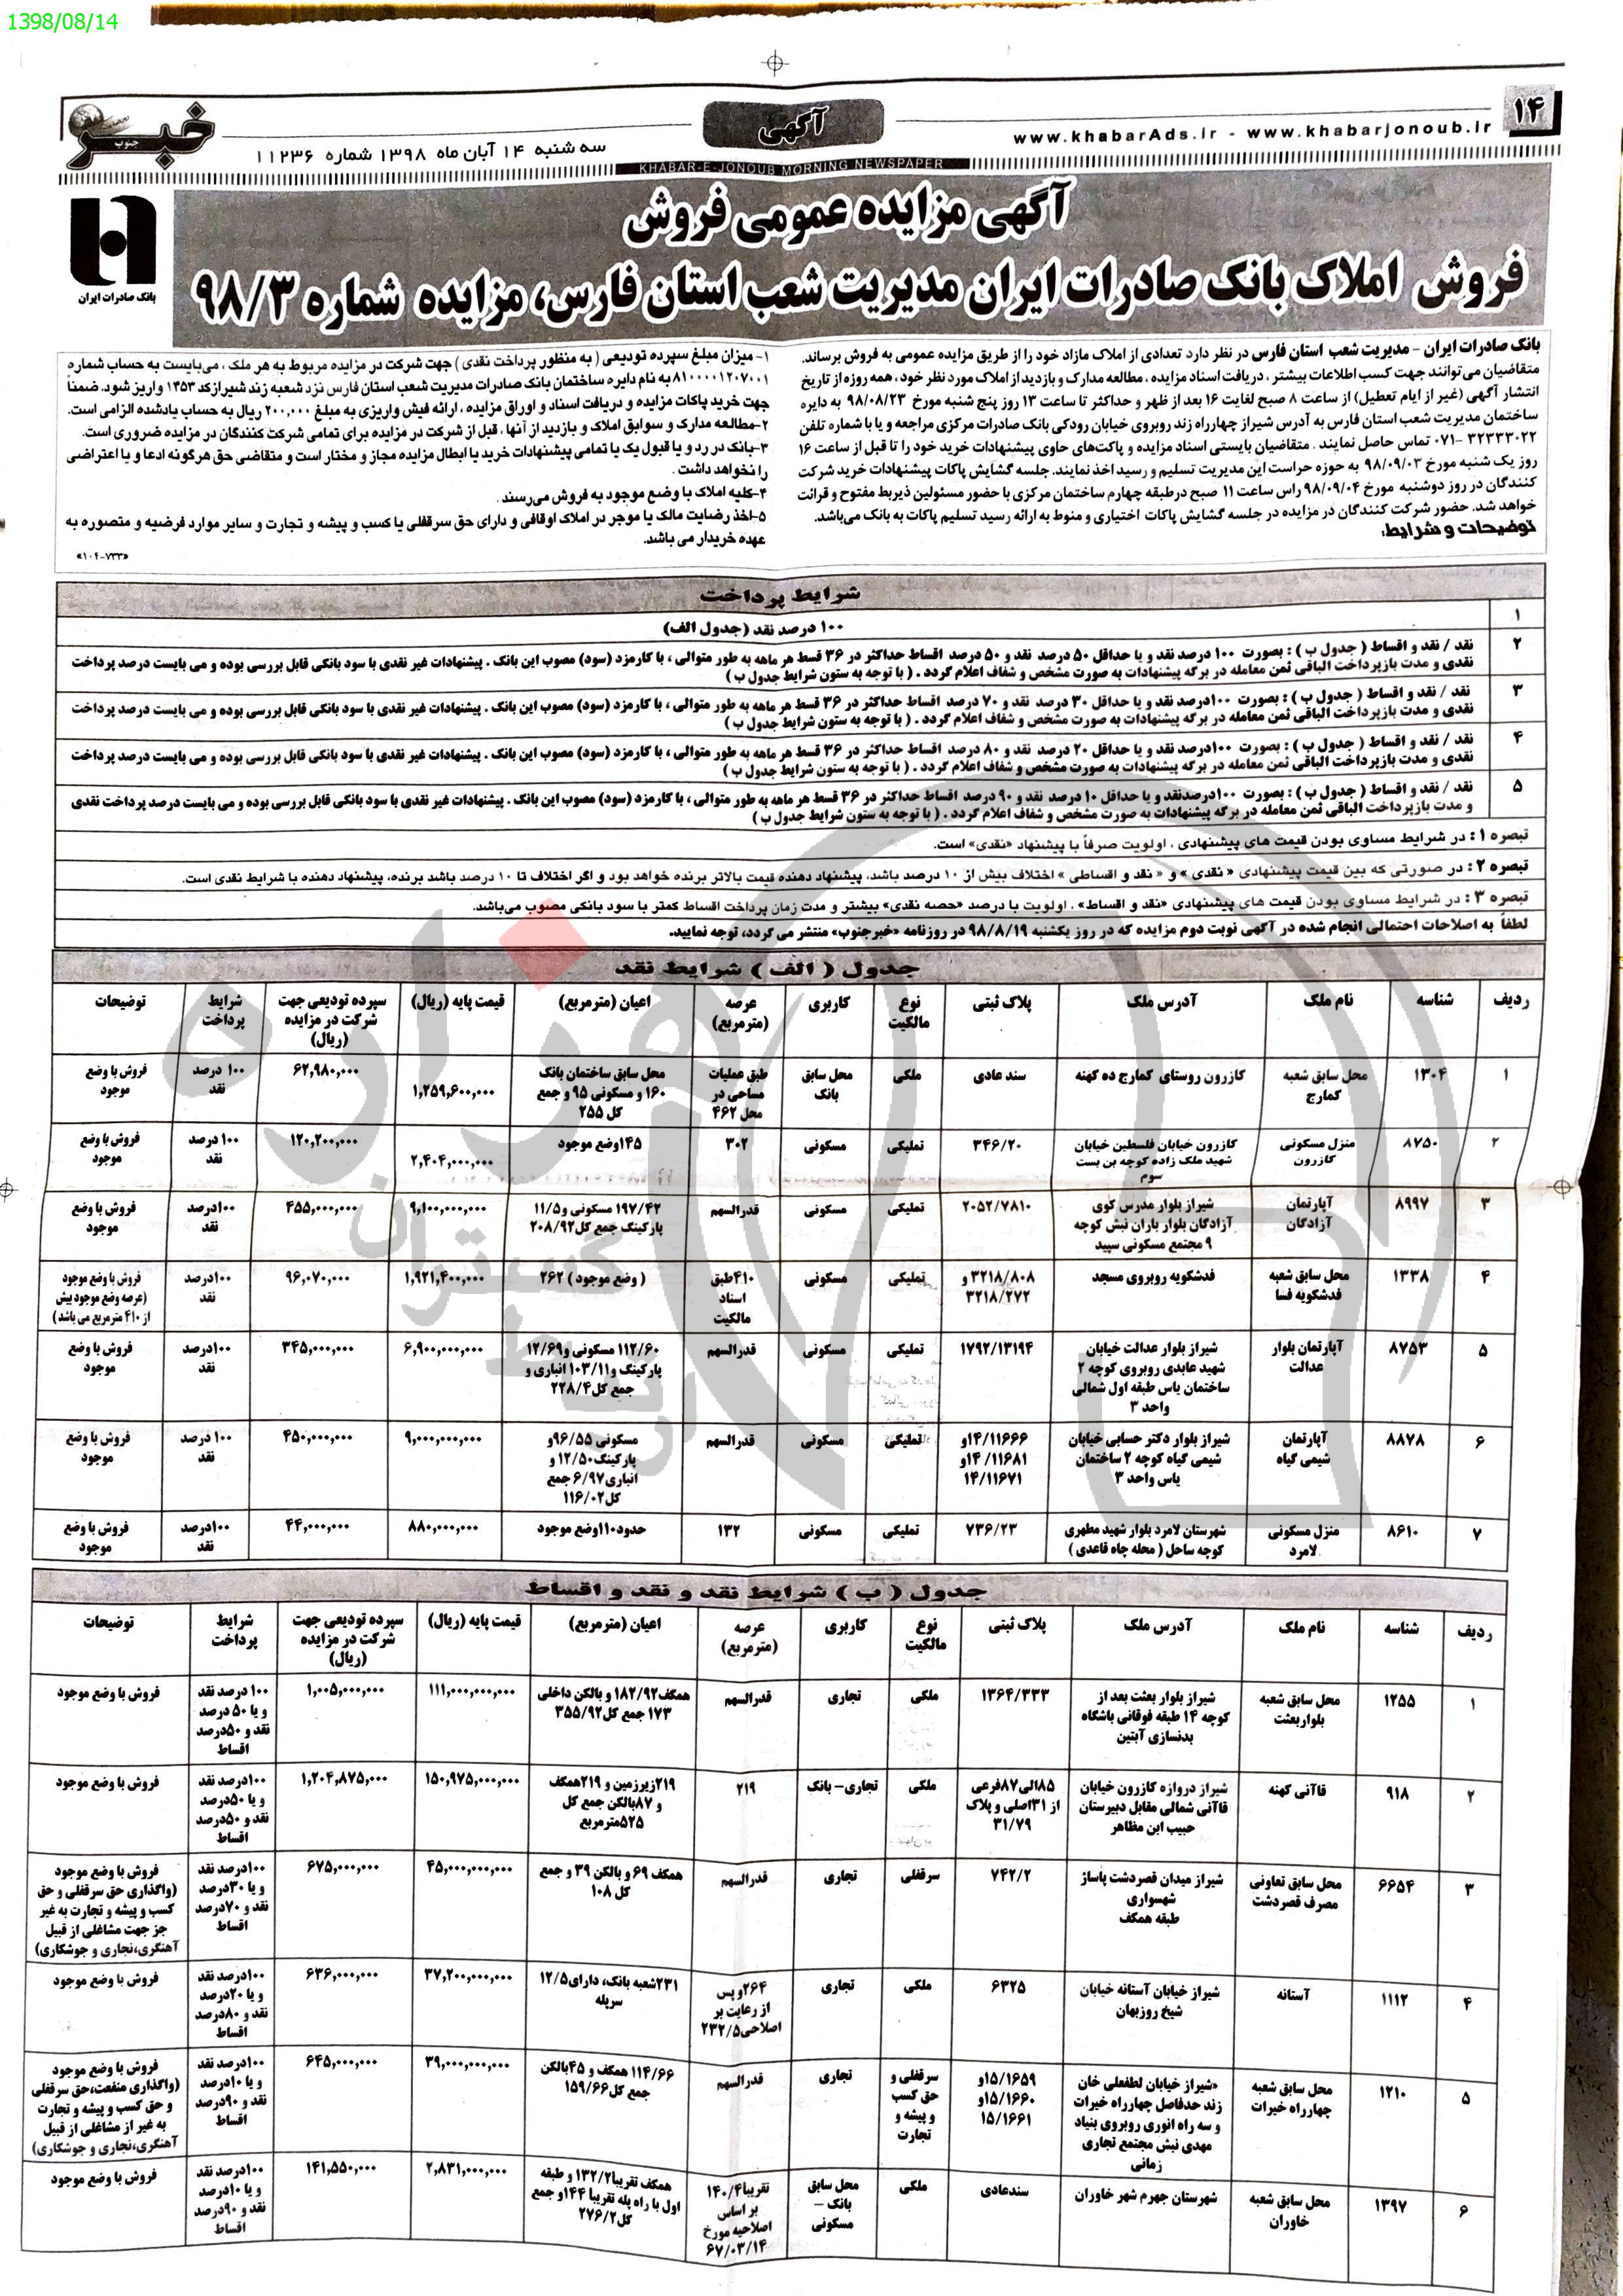 1398/08/14
۱۴
www.khabarAds.ir - www.khabarjonoub.ir
آگهی
سه شنبه ۱۴ آبان ماه ۱۳۹۸ شماره ۱۱۲۳۶
خبر
جنوب
KHABAR-E-JONOUB MORNING NEWSPAPER
آگهی مزایده عمومی فروش
فروش املاک بانک صادرات ایران مدیریت شعب استان فارس، مزایده شماره ۹۸/۳
بانک صادرات ایران
بانک صادرات ایران - مدیریت شعب استان فارس در نظر دارد تعدادی از املاک مازاد خود را از طریق مزایده عمومی به فروش برساند.
متقاضیان می‌توانند جهت کسب اطلاعات بیشتر ، دریافت اسناد مزایده ، مطالعه مدارک و بازدید از املاک مورد نظر خود ، همه روزه از تاریخ
انتشار آگهی (غیر از ایام تعطیل) از ساعت ۸ صبح لغایت ۱۶ بعد از ظهر و حداکثر تا ساعت ۱۳ روز پنج شنبه مورخ ۹۸/۰۸/۲۳ به دایره
ساختمان مدیریت شعب استان فارس به آدرس شیراز چهارراه زند روبروی خیابان رودکی بانک صادرات مرکزی مراجعه و یا با شماره تلفن
۳۲۳۳۳۰۲۲ -۰۷۱ تماس حاصل نمایند . متقاضیان بایستی اسناد مزایده و پاکت‌های حاوی پیشنهادات خرید خود را تا قبل از ساعت ۱۶
روز یک شنبه مورخ ۹۸/۰۹/۰۳ به حوزه حراست این مدیریت تسلیم و رسید اخذ نمایند. جلسه گشایش پاکات پیشنهادات خرید شرکت
کنندگان در روز دوشنبه مورخ ۹۸/۰۹/۰۴ راس ساعت ۱۱ صبح درطبقه چهارم ساختمان مرکزی با حضور مسئولین ذیربط مفتوح و قرائت
خواهد شد. حضور شرکت کنندگان در مزایده در جلسه گشایش پاکات اختیاری و منوط به ارائه رسید تسلیم پاکات به بانک می‌باشد.
توضیحات و شرایط:
۱- میزان مبلغ سپرده تودیعی ( به منظور پرداخت نقدی ) جهت شرکت در مزایده مربوط به هر ملک ، می‌بایست به حساب شماره
۰۱۰۰۰۰۱۲۰۷۰۰۱ به نام دایره ساختمان بانک صادرات مدیریت شعب استان فارس نزد شعبه زند شیراز کد ۱۴۵۳ واریز شود. ضمناً
جهت خرید پاکات مزایده و دریافت اسناد و اوراق مزایده ، ارائه فیش واریزی به مبلغ ۲۰۰,۰۰۰ ریال به حساب یادشده الزامی است.
۲-مطالعه مدارک و سوابق املاک و بازدید از آنها ، قبل از شرکت در مزایده برای تمامی شرکت کنندگان در مزایده ضروری است.
۳-بانک در رد و یا قبول یک یا تمامی پیشنهادات خرید یا ابطال مزایده مجاز و مختار است و متقاضی حق هرگونه ادعا و یا اعتراضی
را نخواهد داشت .
۴-کلیه املاک با وضع موجود به فروش می‌رسند .
۵-اخذ رضایت مالک یا موجر در املاک اوقافی و دارای حق سرقفلی یا کسب و پیشه و تجارت و سایر موارد فرضیه و متصوره به
عهده خریدار می باشد.
«۱۰۴-۷۳۳»
شرایط پرداخت
۱ ۱۰۰ درصد نقد (جدول الف)
۲ نقد / نقد و اقساط ( جدول ب ) : بصورت ۱۰۰ درصد نقد و یا حداقل ۵۰ درصد نقد و ۵۰ درصد اقساط حداکثر در ۳۶ قسط هر ماهه به طور متوالی ، با کارمزد (سود) مصوب این بانک . پیشنهادات غیر نقدی با سود بانکی قابل بررسی بوده و می بایست درصد پرداخت
نقدی و مدت بازپرداخت الباقی ثمن معامله در برگه پیشنهادات به صورت مشخص و شفاف اعلام گردد . ( با توجه به ستون شرایط جدول ب )
۳ نقد / نقد و اقساط ( جدول ب ) : بصورت ۱۰۰درصد نقد و یا حداقل ۳۰ درصد نقد و ۷۰ درصد اقساط حداکثر در ۳۶ قسط هر ماهه به طور متوالی ، با کارمزد (سود) مصوب این بانک . پیشنهادات غیر نقدی با سود بانکی قابل بررسی بوده و می بایست درصد پرداخت
نقدی و مدت بازپرداخت الباقی ثمن معامله در برگه پیشنهادات به صورت مشخص و شفاف اعلام گردد . ( با توجه به ستون شرایط جدول ب )
۴ نقد / نقد و اقساط ( جدول ب ) : بصورت ۱۰۰درصد نقد و یا حداقل ۲۰ درصد نقد و ۸۰ درصد اقساط حداکثر در ۳۶ قسط هر ماهه به طور متوالی ، با کارمزد (سود) مصوب این بانک . پیشنهادات غیر نقدی با سود بانکی قابل بررسی بوده و می بایست درصد پرداخت
نقدی و مدت بازپرداخت الباقی ثمن معامله در برگه پیشنهادات به صورت مشخص و شفاف اعلام گردد . ( با توجه به ستون شرایط جدول ب )
۵ نقد / نقد و اقساط ( جدول ب ) : بصورت ۱۰۰درصدنقد و یا حداقل ۱۰ درصد نقد و ۹۰ درصد اقساط حداکثر در ۳۶ قسط هر ماهه به طور متوالی ، با کارمزد (سود) مصوب این بانک . پیشنهادات غیر نقدی با سود بانکی قابل بررسی بوده و می بایست درصد پرداخت نقدی
و مدت بازپرداخت الباقی ثمن معامله در برگه پیشنهادات به صورت مشخص و شفاف اعلام گردد . ( با توجه به ستون شرایط جدول ب )
تبصره ۱ : در شرایط مساوی بودن قیمت های پیشنهادی ، اولویت صرفاً با پیشنهاد «نقدی» است.
تبصره ۲ : در صورتی که بین قیمت پیشنهادی « نقدی » و « نقد و اقساطی » اختلاف بیش از ۱۰ درصد باشد، پیشنهاد دهنده قیمت بالاتر برنده خواهد بود و اگر اختلاف تا ۱۰ درصد باشد برنده، پیشنهاد دهنده با شرایط نقدی است.
تبصره ۳ : در شرایط مساوی بودن قیمت های پیشنهادی «نقد و اقساط» ، اولویت با درصد «حصه نقدی» بیشتر و مدت زمان پرداخت اقساط کمتر با سود بانکی مصوب می‌باشد.
لطفاً به اصلاحات احتمالی انجام شده در آگهی نوبت دوم مزایده که در روز یکشنبه ۹۸/۸/۱۹ در روزنامه «خبرجنوب» منتشر می گردد، توجه نمایید.
جدول ( الف ) شرایط نقد
ردیف شناسه نام ملک آدرس ملک پلاک ثبتی نوع مالکیت کاربری عرصه (مترمربع) اعیان (مترمربع) قیمت پایه (ریال) سپرده تودیعی جهت شرکت در مزایده (ریال) شرایط پرداخت توضیحات
۱ ۱۳۰۴ محل سابق شعبه کمارج کازرون روستای کمارج ده کهنه سند عادی ملکی محل سابق بانک طبق عملیات مساحی در محل ۴۶۲ محل سابق ساختمان بانک ۱۶۰ و مسکونی ۹۵ و جمع کل ۲۵۵ ۱,۲۵۹,۶۰۰,۰۰۰ ۶۲,۹۸۰,۰۰۰ ۱۰۰ درصد نقد فروش با وضع موجود
۲ ۸۷۵۰ منزل مسکونی کازرون کازرون خیابان فلسطین خیابان شهید ملک زاده کوچه بن بست سوم ۳۴۶/۲۰ تملیکی مسکونی ۳۰۲ ۱۴۵وضع موجود ۲,۴۰۴,۰۰۰,۰۰۰ ۱۲۰,۲۰۰,۰۰۰ ۱۰۰ درصد نقد فروش با وضع موجود
۳ ۸۹۹۷ آپارتمان آزادگان شیراز بلوار مدرس کوی آزادگان بلوار باران نبش کوچه ۹ مجتمع مسکونی سپید ۲۰۵۲/۷۸۱۰ تملیکی مسکونی قدرالسهم ۱۹۷/۴۲ مسکونی و۱۱/۵ پارکینگ جمع کل۲۰۸/۹۲ ۹,۱۰۰,۰۰۰,۰۰۰ ۴۵۵,۰۰۰,۰۰۰ ۱۰۰درصد نقد فروش با وضع موجود
۴ ۱۳۳۸ محل سابق شعبه فدشکویه فسا فدشکویه روبروی مسجد ۳۲۱۸/۸۰۸ و ۳۲۱۸/۲۷۲ تملیکی مسکونی ۴۱۰طبق اسناد مالکیت ( وضع موجود ) ۲۶۲ ۱,۹۲۱,۴۰۰,۰۰۰ ۹۶,۰۷۰,۰۰۰ ۱۰۰درصد نقد فروش با وضع موجود (عرصه وضع موجود بیش از ۴۱۰ مترمربع می باشد)
۵ ۸۷۵۳ آپارتمان بلوار عدالت شیراز بلوار عدالت خیابان شهید عابدی روبروی کوچه ۲ ساختمان یاس طبقه اول شمالی واحد ۳ ۱۷۹۲/۱۳۱۹۴ تملیکی مسکونی قدرالسهم ۱۱۲/۶۰ مسکونی و۱۲/۶۹ پارکینگ و۱۰۳/۱۱ انباری و جمع کل۲۲۸/۴ ۶,۹۰۰,۰۰۰,۰۰۰ ۳۴۵,۰۰۰,۰۰۰ ۱۰۰درصد نقد فروش با وضع موجود
۶ ۸۸۷۸ آپارتمان شیمی گیاه شیراز بلوار دکتر حسابی خیابان شیمی گیاه کوچه ۲ ساختمان یاس واحد ۳ ۱۴/۱۱۶۶۶و ۱۴/۱۱۶۸۱و ۱۴/۱۱۶۷۱ تملیکی مسکونی قدرالسهم مسکونی ۹۶/۵۵و پارکینگ۱۲/۵۰ و انباری۶/۹۷ جمع کل۱۱۶/۰۲ ۹,۰۰۰,۰۰۰,۰۰۰ ۴۵۰,۰۰۰,۰۰۰ ۱۰۰ درصد نقد فروش با وضع موجود
۷ ۸۶۱۰ منزل مسکونی لامرد شهرستان لامرد بلوار شهید مطهری کوچه ساحل ( محله چاه قاعدی ) ۷۳۶/۲۳ تملیکی مسکونی ۱۳۲ حدود۱۱۰وضع موجود ۸۸۰,۰۰۰,۰۰۰ ۴۴,۰۰۰,۰۰۰ ۱۰۰درصد نقد فروش با وضع موجود
جدول ( ب ) شرایط نقد و نقد و اقساط
ردیف شناسه نام ملک آدرس ملک پلاک ثبتی نوع مالکیت کاربری عرصه (مترمربع) اعیان (مترمربع) قیمت پایه (ریال) سپرده تودیعی جهت شرکت در مزایده (ریال) شرایط پرداخت توضیحات
۱ ۱۲۵۵ محل سابق شعبه بلواربعثت شیراز بلوار بعثت بعد از کوچه ۱۴ طبقه فوقانی باشگاه بدنسازی آبتین ۱۳۶۴/۳۳۳ ملکی تجاری قدرالسهم همکف۱۸۲/۹۲ و بالکن داخلی ۱۷۳ جمع کل۳۵۵/۹۲ ۱۱۱,۰۰۰,۰۰۰,۰۰۰ ۱,۰۰۵,۰۰۰,۰۰۰ ۱۰۰ درصد نقد و یا ۵۰ درصد نقد و ۵۰درصد اقساط فروش با وضع موجود
۲ ۹۱۸ قاآنی کهنه شیراز دروازه کازرون خیابان قاآنی شمالی مقابل دبیرستان حبیب ابن مظاهر ۸۵الی۸۷فرعی از ۳۱اصلی و پلاک ۳۱/۷۹ ملکی تجاری- بانک ۲۱۹ ۲۱۹زیرزمین و ۲۱۹همکف و ۸۷بالکن جمع کل ۵۲۵مترمربع ۱۵۰,۹۷۵,۰۰۰,۰۰۰ ۱,۲۰۴,۸۷۵,۰۰۰ ۱۰۰درصد نقد و یا ۵۰درصد نقد و ۵۰درصد اقساط فروش با وضع موجود
۳ ۶۶۵۴ محل سابق تعاونی مصرف قصردشت شیراز میدان قصردشت پاساژ شهسواری طبقه همکف ۷۴۲/۲ سرقفلی تجاری قدرالسهم همکف ۶۹ و بالکن ۳۹ و جمع کل ۱۰۸ ۴۵,۰۰۰,۰۰۰,۰۰۰ ۶۷۵,۰۰۰,۰۰۰ ۱۰۰درصد نقد و یا ۳۰درصد نقد و ۷۰درصد اقساط فروش با وضع موجود (واگذاری حق سرقفلی و حق کسب و پیشه و تجارت به غیر جز جهت مشاغلی از قبیل آهنگری،نجاری و جوشکاری)
۴ ۱۱۱۲ آستانه شیراز خیابان آستانه خیابان شیخ روزبهان ۶۳۲۵ ملکی تجاری ۲۶۴و پس از رعایت بر اصلاحی۲۳۲/۵ ۲۳۱شعبه بانک، دارای۱۲/۵ سرپله ۳۷,۲۰۰,۰۰۰,۰۰۰ ۶۳۶,۰۰۰,۰۰۰ ۱۰۰درصد نقد و یا ۲۰درصد نقد و ۸۰درصد اقساط فروش با وضع موجود
۵ ۱۲۱۰ محل سابق شعبه چهارراه خیرات شیراز خیابان لطفعلی خان زند حدفاصل چهارراه خیرات و سه راه انوری روبروی بنیاد مهدی نبش مجتمع تجاری زمانی ۱۵/۱۶۵۹و ۱۵/۱۶۶۰و ۱۵/۱۶۶۱ سرقفلی و حق کسب و پیشه و تجارت تجاری قدرالسهم ۱۱۴/۶۶ همکف و ۴۵بالکن جمع کل۱۵۹/۶۶ ۳۹,۰۰۰,۰۰۰,۰۰۰ ۶۴۵,۰۰۰,۰۰۰ ۱۰۰درصد نقد و یا ۱۰درصد نقد و ۹۰درصد اقساط فروش با وضع موجود (واگذاری منفعت،حق سرقفلی و حق کسب و پیشه و تجارت به غیر از مشاغلی از قبیل آهنگری،نجاری و جوشکاری)
۶ ۱۳۹۷ محل سابق شعبه خاوران شهرستان جهرم شهر خاوران سندعادی ملکی محل سابق بانک - مسکونی تقریبا۱۴۰/۴ بر اساس اصلاحیه مورخ ۶۷/۰۳/۱۴ همکف تقریبا۱۳۲/۲ و طبقه اول با راه پله تقریبا ۱۴۴و جمع کل۲۷۶/۲ ۲,۸۳۱,۰۰۰,۰۰۰ ۱۴۱,۵۵۰,۰۰۰ ۱۰۰درصد نقد و یا ۱۰درصد نقد و ۹۰درصد اقساط فروش با وضع موجود